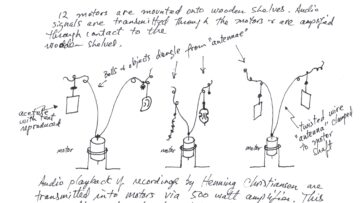 12 motors are mounted onto wooden shelves. Audio
signals are transmitted through the motors & are amplified
through contact to the
wooden shelves.
Bells & objects dangle from "antennae"
acetate with text
reproduced
motor
motor
motor
"twisted wire
"antenna" clamped
to motor
shaft
Audio playback of recordings by Henning Christiansen are
transmitted into motors via 500 watt amplifier. This